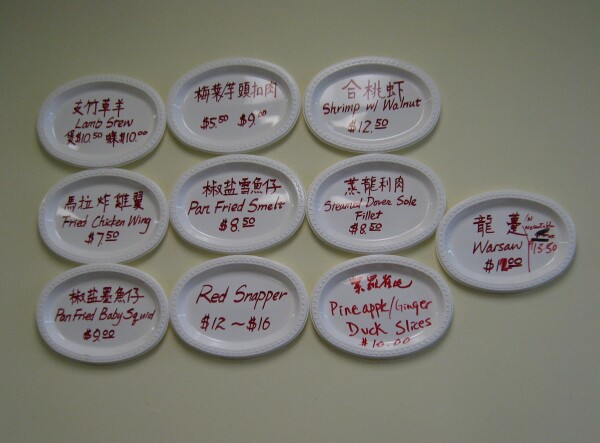 支竹草羊
Lamb Stew
$10.50 $10.00
梅菜芋頭扣肉
$5.50 $9.00
合桃虾
Shrimp w/ Walnut
$12.50
馬拉炸雞翼
Fried Chicken Wing
$7.50
椒盐雪魚仔
Pan Fried Smelt
$8.50
蒸龍利肉
Steamed Dover Sole
Fillet
$8.50
龍躉
Warsaw
$13.50
椒盐墨魚仔
Pan Fried Baby Squid
$9.00
Red Snapper
$12~$16
Pineapple/Ginger
Duck Slices
$10.00